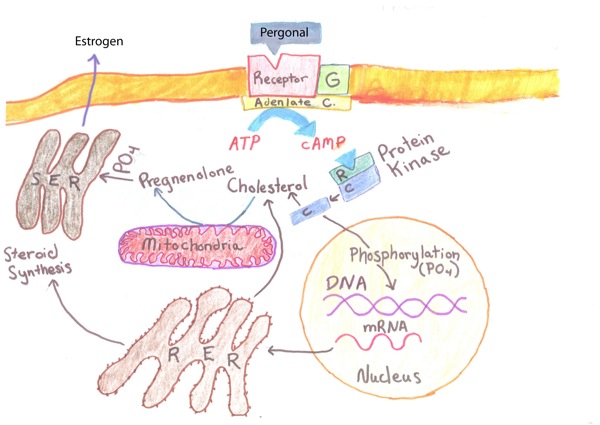 Pergonal
Estrogen
Receptor
G
Adenlate C.
ATP
cAMP
Protein
Kinase
R
C
C
PO4
SER
Pregnenolone
Cholesterol
Mitochondria
Steroid
Synthesis
Phosphorylation
(PO4)
DNA
mRNA
RER
Nucleus